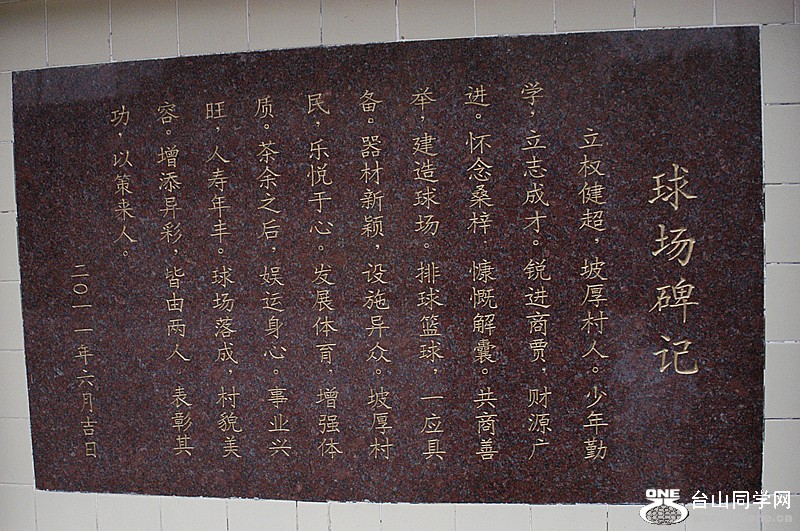 球场碑记
立权健超，坡厚村人。少年勤
学，立志成才。锐进商贾，财源广
进。怀念桑梓，慷慨解囊。共商善
举，建造球场。排球篮球，一应具
备。器材新颖，设施异众。坡厚村
民，乐悦于心。发展体育，增强体
质。茶余之后，娱运身心。事业兴
旺，人寿年丰。球场落成，村貌美
容。增添异彩，皆由两人，表彰其
功，以策来人。
二〇一一年六月吉日
ONE
台山同学网